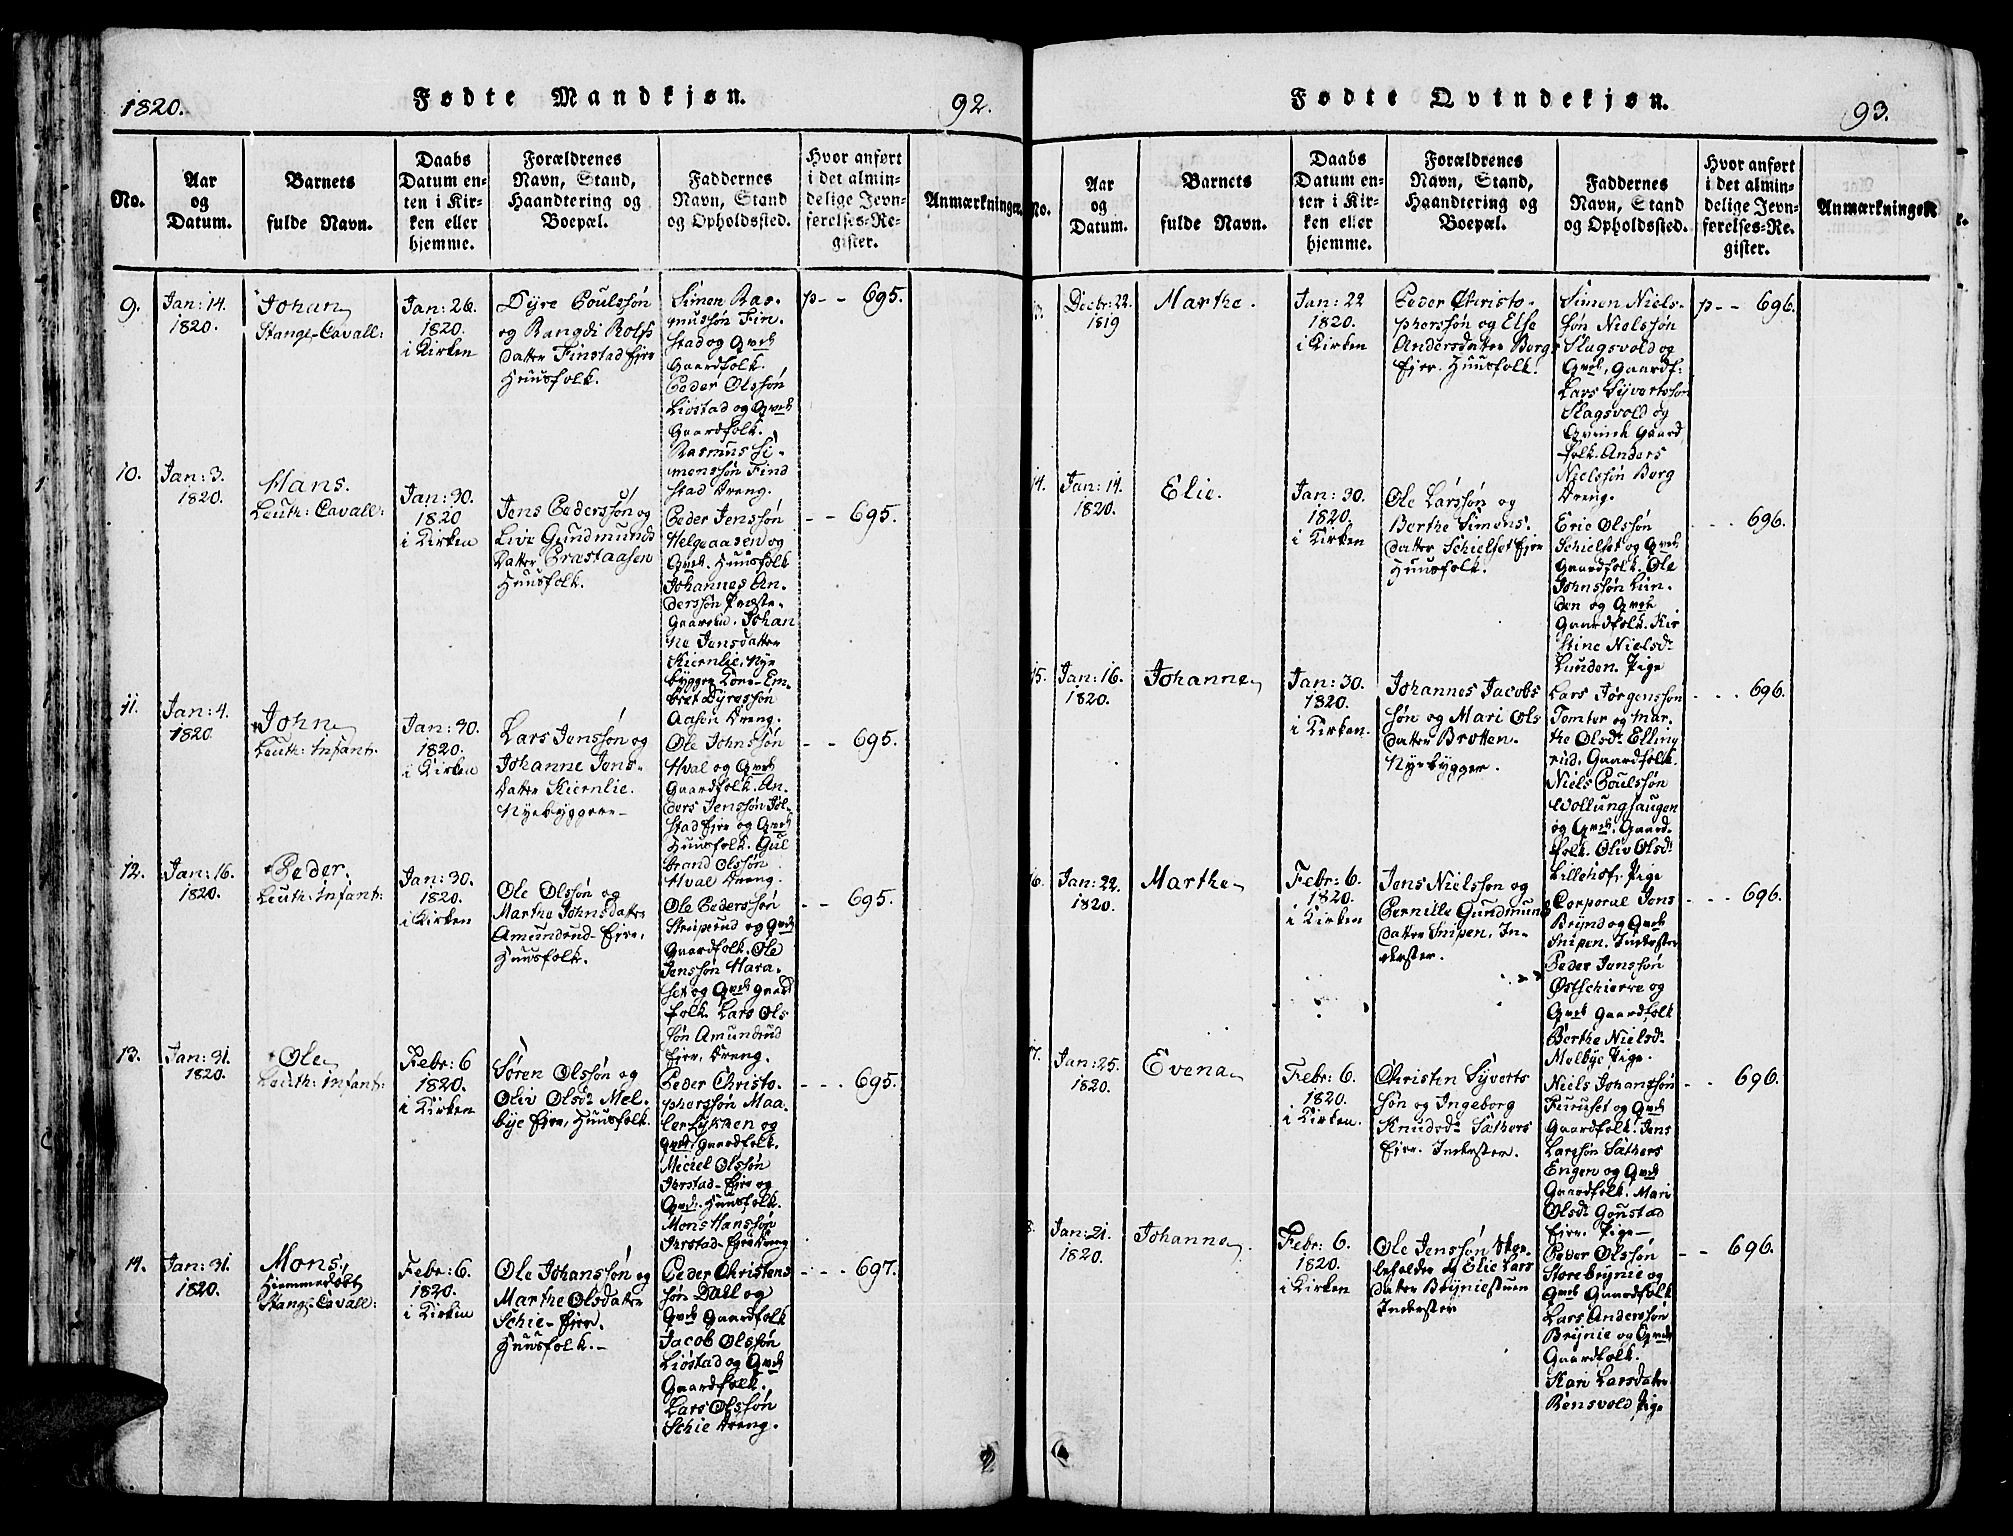 1820.
Fødte Mandkjøn.
92.
No.
Aar
og
Datum.
Barnets
fulde Navn.
Daabs
Datum en-
ten i Kir-
ken eller
hjemme.
Forældrenes
Navn, Stand,
Haandtering og
Boepæl.
Faddernes
Navn, Stand
og Opholdssted.
Hvor anført
i det almin-
delige Jevn-
førelses-Re-
gister.
Anmærkninger.
9.
Jan: 14.
1820.
Johan
Stange-Cavall:
Jan: 26.
1820.
i Kirken
Dyre Poulssøn
og Rangdi Rolfs
datter Finstad Eier
Huusfolk.
Simen Ras-
mussøn Fin-
stad og Qvinde
Gaardfolk.
Peder Olssøn
Liøstad og Qvinde
Gaardfolk.
Rasmus Si-
monssøn Find
stad Dreng.
p - - 695.
10.
Jan: 3.
1820.
Hans.
Leuth: Cavall:
Jan: 30.
1820
i Kirken
Jens Pederssøn og
Live Gundmunds
Datter Præstaasen
Huusfolk.
Peder Jenssøn
Helgeaasen og
Qvd. Huusfolk
Johannes An-
derssøn Præste-
Gaarden. Johan
ne Jensdatter
Kiernlie, Nye
bygger Kone. Em-
bret Dyressøn
Aasen Dreng.
- - 695.
11.
Jan: 4.
1820
Johne
Leuth: Infantr.
Jan: 30.
1820.
i Kirken
Lars Jenssøn og
Johanne Jens-
Datter Kiernlie.
Nyebyggere-
Ole Johnssøn
Hval og Qvd
Gaardfolk. An-
ders Jenssøn Jøl-
stad Eier og Qvd
Huusfolk. Gul
brand Olssøn
Hval Dreng.
- - 695.
12.
Jan: 16.
1820.
Peder.
Leuth: Infant:
Jan: 30.
1820.
i Kirken
Ole Olssøn og
Marthe Johnsdatter
Amundrud- Eier,
Huusfolk.
Ole Pederssøn
Struperud og Qvd
Gaardfolk. Ole
Jenssøn Hara-
set og Qvd Gaard
folk. Lars Ols
søn Amundrud
Eier, Dreng.
- - 695.
13.
Jan: 31.
1820.
Ole
Leuth: Infant:
Febr: 6
1820.
i Kirken
Søren Olssøn og
Oliv Olsdr Mel-
bye Eier, Huusfolk.
Peder Christo-
pherssøn Maa-
lerløkken og
Qvd. Gaardfolk.
Miciel Olssøn
Ihrstad- Eier og
Qvd. Huusfolk.
Mons Hanssøn
Ihrstad- Eier Dreng
- - - 695.
14.
Jan: 31.
1820.
Mons,
Hiemmedøbt
Stange-Cavall:
Febr: 6.
1820.
i Kirken
Ole Johanssøn og
Marthe Olsdatter
Schie- Eier.
Huusfolk.-
Peder Christens
søn Dæll og
Qvd Gaardfolk
Jacob Olssøn
Liøstad og Qvd
Gaardfolk.
Lars Olssøn
Schie Dreng.
- - - 697.
Fødte Qvindekjøn.
93.
No.
Aar
og
Datum.
Barnets
fulde Navn.
Daabs
Datum en-
ten i Kir-
ken eller
hjemme.
Forældrenes
Navn, Stand,
Haandtering og
Boepæl.
Faddernes
Navn, Stand
og Opholdssted.
Hvor anført
i det almin-
delige Jevn-
førelses-Re-
gister.
Anmærkninger.
Decbr: 22.
1819
Marthe.
Jan: 22
1820.
i Kirken
Peder Christo-
pherssøn og Else
Andersdatter Berg
Eier. Huusfolk.
Simen Niels-
søn Nielssøn
Slagsvold og
Qvd, Gaardf:
Lars Syvertssøn
Slagsvold og
Qvinde Gaard
folk. Anders
Nielssøn Berg
Dreng.
p - - 696.
14.
Jan: 14.
1820.
Elie.
Jan: 30.
1820.
i Kirken
Ole Larssøn og
Berthe Simens-
datter Schielset Eier
Huusfolk.
Eric Olssøn
Schielset og Qvd
Gaardfolk. Ole
Johnssøn Lun-
den og Qvd
Gaardfolk. Kir
stine Nielsdr
Lunden. Pige
- - - 696.
15.
Jan: 16.
1820.
Johanne
Jan: 30.
1820.
i Kirken.
Johannes Jacobs
søn og Mari Ols
datter Brotten.
Nyebygger.
Lars Jørgenssøn
Tomter og Mar-
the Olsdr Elling
rud. Gaardfolk.
Niels Poulssøn
Wollunghaugen
og Qvd. Gaard-
folk. Oliv Olsdr
Lillehof, Pige
- - - 696.
16.
Jan: 22.
1820.
Marthe
Febr: 6.
1820.
i Kirken
Jens Nielssøn og
Pernille Gundmunds
datter Snipen. In-
derster.
Corporal Jens
Brynd og Qvd
Snipen. Inderster
Peder Jenssøn
Østschierre og
Qvd Gaardfolk
Berthe Nielsdr
Melbye Pige.
- - - 696.
17.
Jan: 25.
1820.
Evena
Febr: 6.
1820.
i Kirken.
Christen Syverts
søn og Ingeborg
Knudsdr Sæthers
Eier. Inderster.
Niels Johanssøn
Furuset og Qvd
Gaardfolk. Jens
Larssøn Sæthers
Engen og Qvd
Gaardfolk. Mari
Olsdr Gonstad
Eier. Pige-
- - 696.
8.
Jan: 21.
1820.
Johanne.
Febr: 6.
1820.
i Kirken
Ole Jenssøn Skoe-
beholder og Elie Lars
datter Bryniestuen
Inderster
Peder Olssøn
Store Brynie og
Qvd Gaardfolk
Lars Anderssøn
Brynie og Qvd
Gaardfolk.
Kari Larsdatter
Bensvold Pige
- - 696.